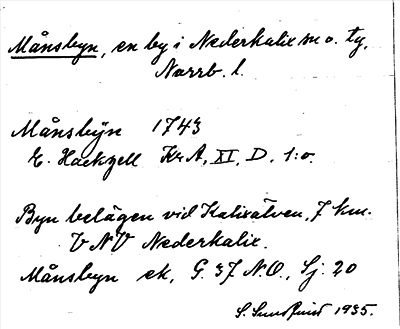 Månsbyn, en by i Nederkalix sn o. tg,
Norrb. l.
Månsbÿn 1743
E. Hackzell KrA, XI, D. 1:o.
Byn belägen vid Kalixälven, 7 km.
VNV Nederkalix.
Månsbyn ek, G. 37 N.O., Sj. 20
S. Sundqvist 1935.